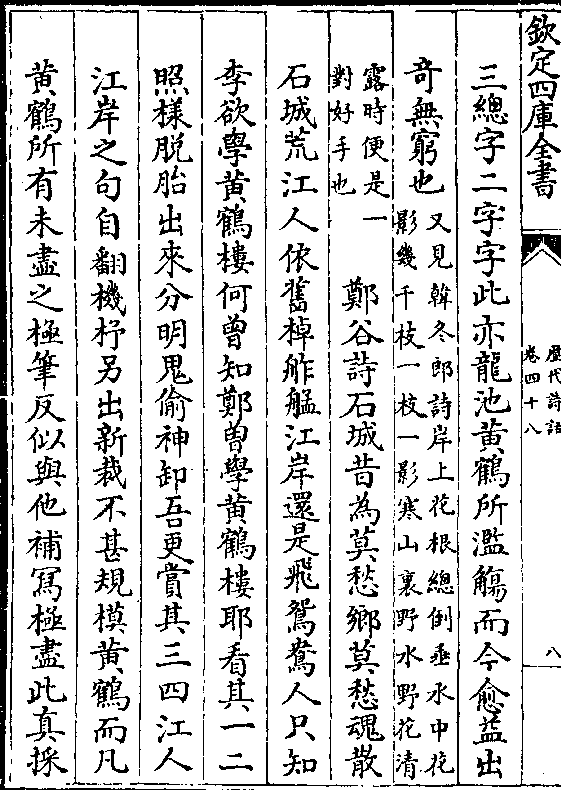 欽定四庫全書
歷代詩話
卷四十八
八
三總字二字字此亦龍池黃鶴所濫觴而今愈益出
竒無窮也又見韓冬郎詩岸上花根總倒垂水中花
影幾千枝一枝一影寒山裏野水野花清
露時便是一
對好手也
鄭谷詩石城昔為莫愁鄉莫愁魂散
石城荒江人依舊棹舴艋江岸還是飛鴛鴦人只知
李欲學黃鶴樓何曾知鄭曾學黃鶴樓耶看其一二
照樣脫胎出來分明鬼偷神卸吾更賞其三四江人
江岸之句自翻機杼另出新裁不甚規模黃鶴而凡
黃鶴所有未盡之極筆反似與他補寫極盡此真採